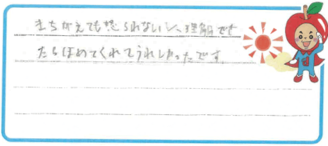 まちがえても怒られないし、理解でき
たらほめてくれてうれしかったです